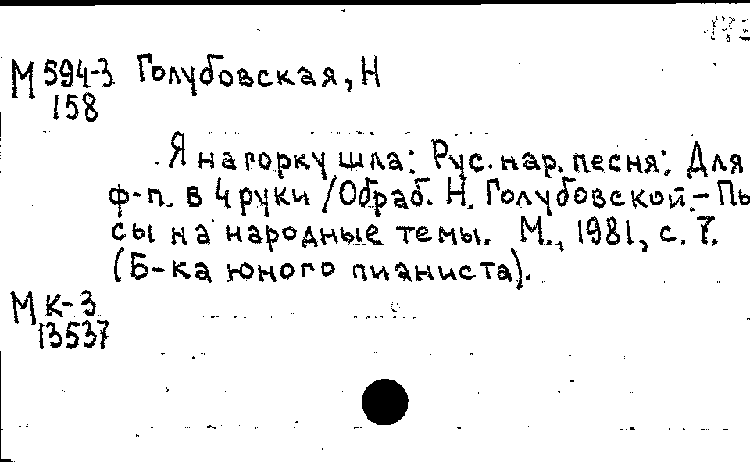 М 594-3 Голубовская, Н
158
Я на горку шла: Рус. нар. песня: Для
ф-п. в 4 руки / Обраб. Н. Голубовской.- Пь
сы на народные темы. М., 1981, с. 7.
(Б-ка юного пианиста).
М К-3
13537